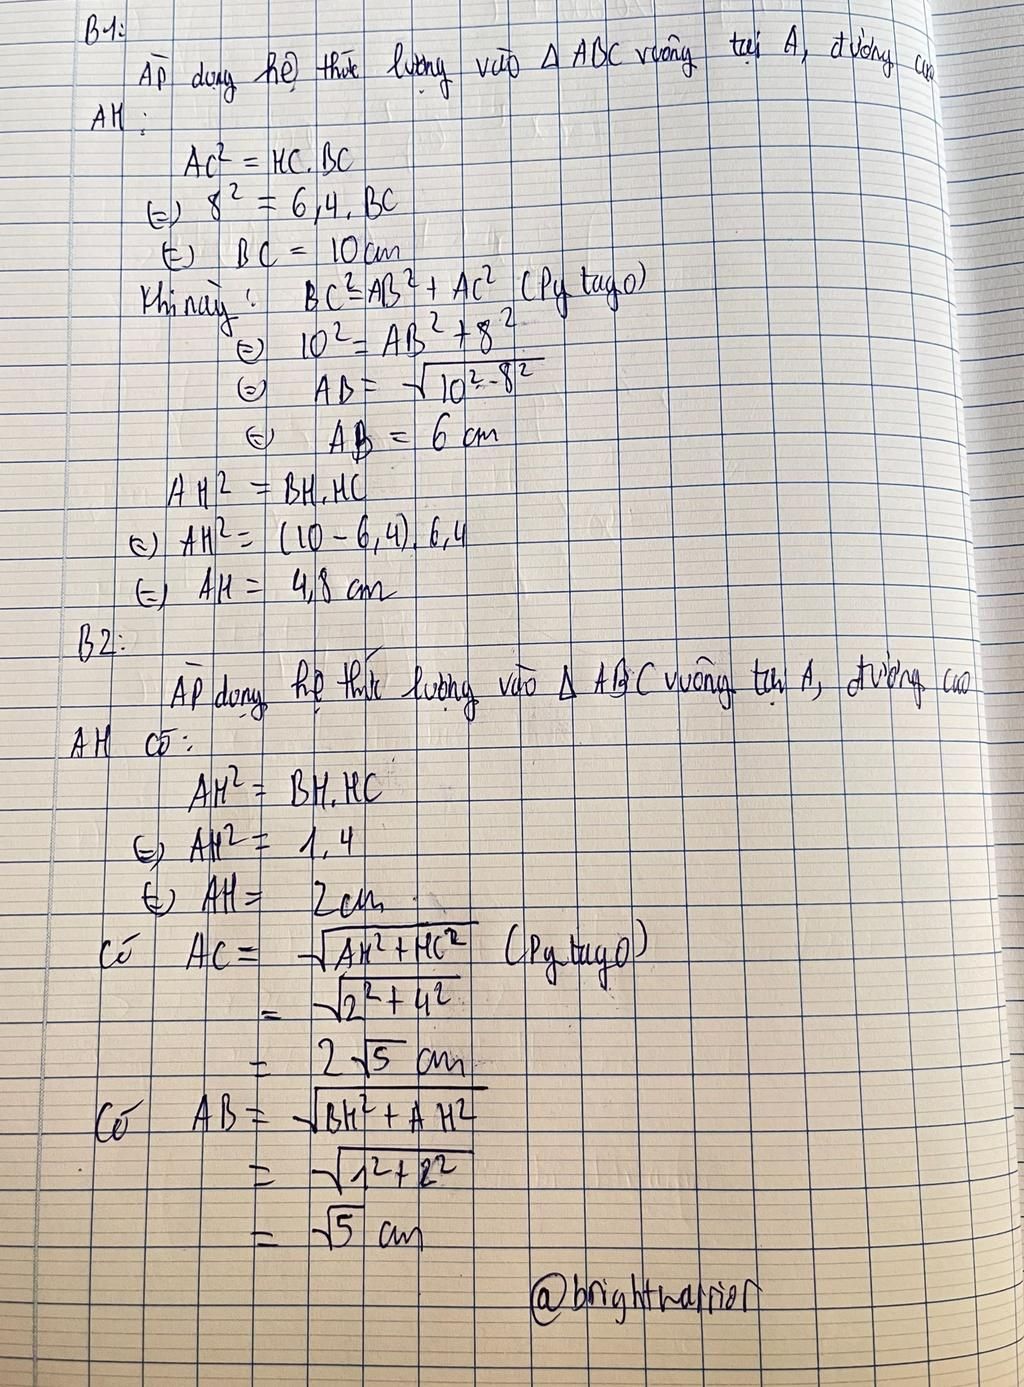 B1:
Áp dụng hệ thức lượng vào Δ ABC vuông tại A, đường cao
AH :
AC² = HC.BC
(=) 8² = 6,4. BC
(=) BC = 10cm
Khi này: BC²=AB²+ AC² (Pytago)
(=) 10² = AB² + 8²
(=) AB = √10²-8²
(=) AB = 6 cm
AH² = BH.HC
(=) AH² = (10 - 6,4). 6,4
(=) AH = 4,8 cm
B2:
Áp dụng hệ thức lượng vào Δ ABC vuông tại A, đường cao
AH có:
AH² = BH.HC
(=) AH² = 1.4
(=) AH = 2cm
Có AC = √AH²+HC² (Pytago)
= √2²+4²
= 2√5 cm
Có AB = √BH²+AH²
= √1²+2²
= √5 cm
@brightwarrior